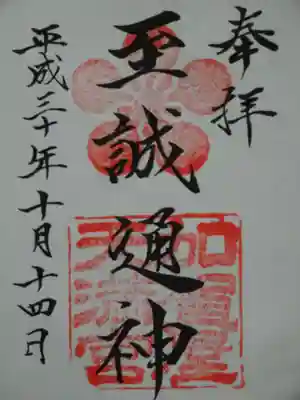 奉拝
至誠通神
平成三十年十月十四日